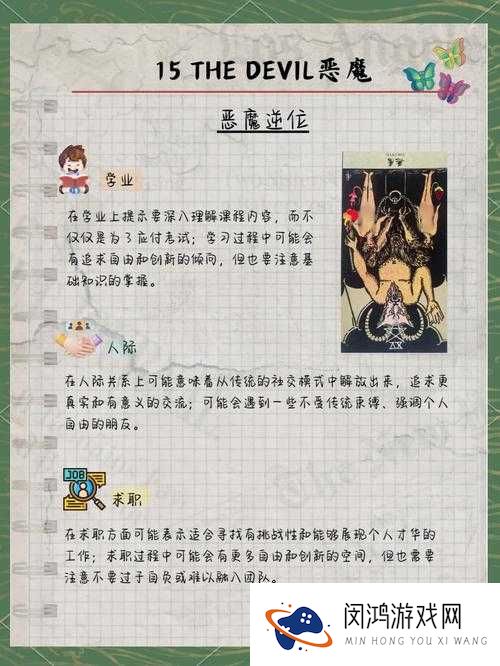 15 THE DEVIL恶魔
恶魔逆位
学业
在学业上提示要深入理解课程内容，而不
仅仅是为了应付考试；学习过程中可能会
有追求自由和创新的倾向，但也要注意基
础知识的掌握。
XV
人际
在人际关系上可能意味着从传统的社交模式中解放出来，追求更
真实和有意义的交流；可能会遇到一些不受传统束缚、强调个人
自由的朋友。
JOB
求职
在求职方面可能表示适合寻找有挑战性和能够展现个人才华的
工作；求职过程中可能会有更多自由和创新的空间，但也需要
注意不要过于自负或难以融入团队。
闵鸿游戏网
MIN HONG YOU XI WANG